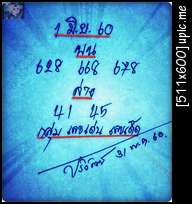 1 มิ.ย. 60
บน
628 668 678
ล่าง
41 45
31 พ.ค. 60
[511x600]upic.me